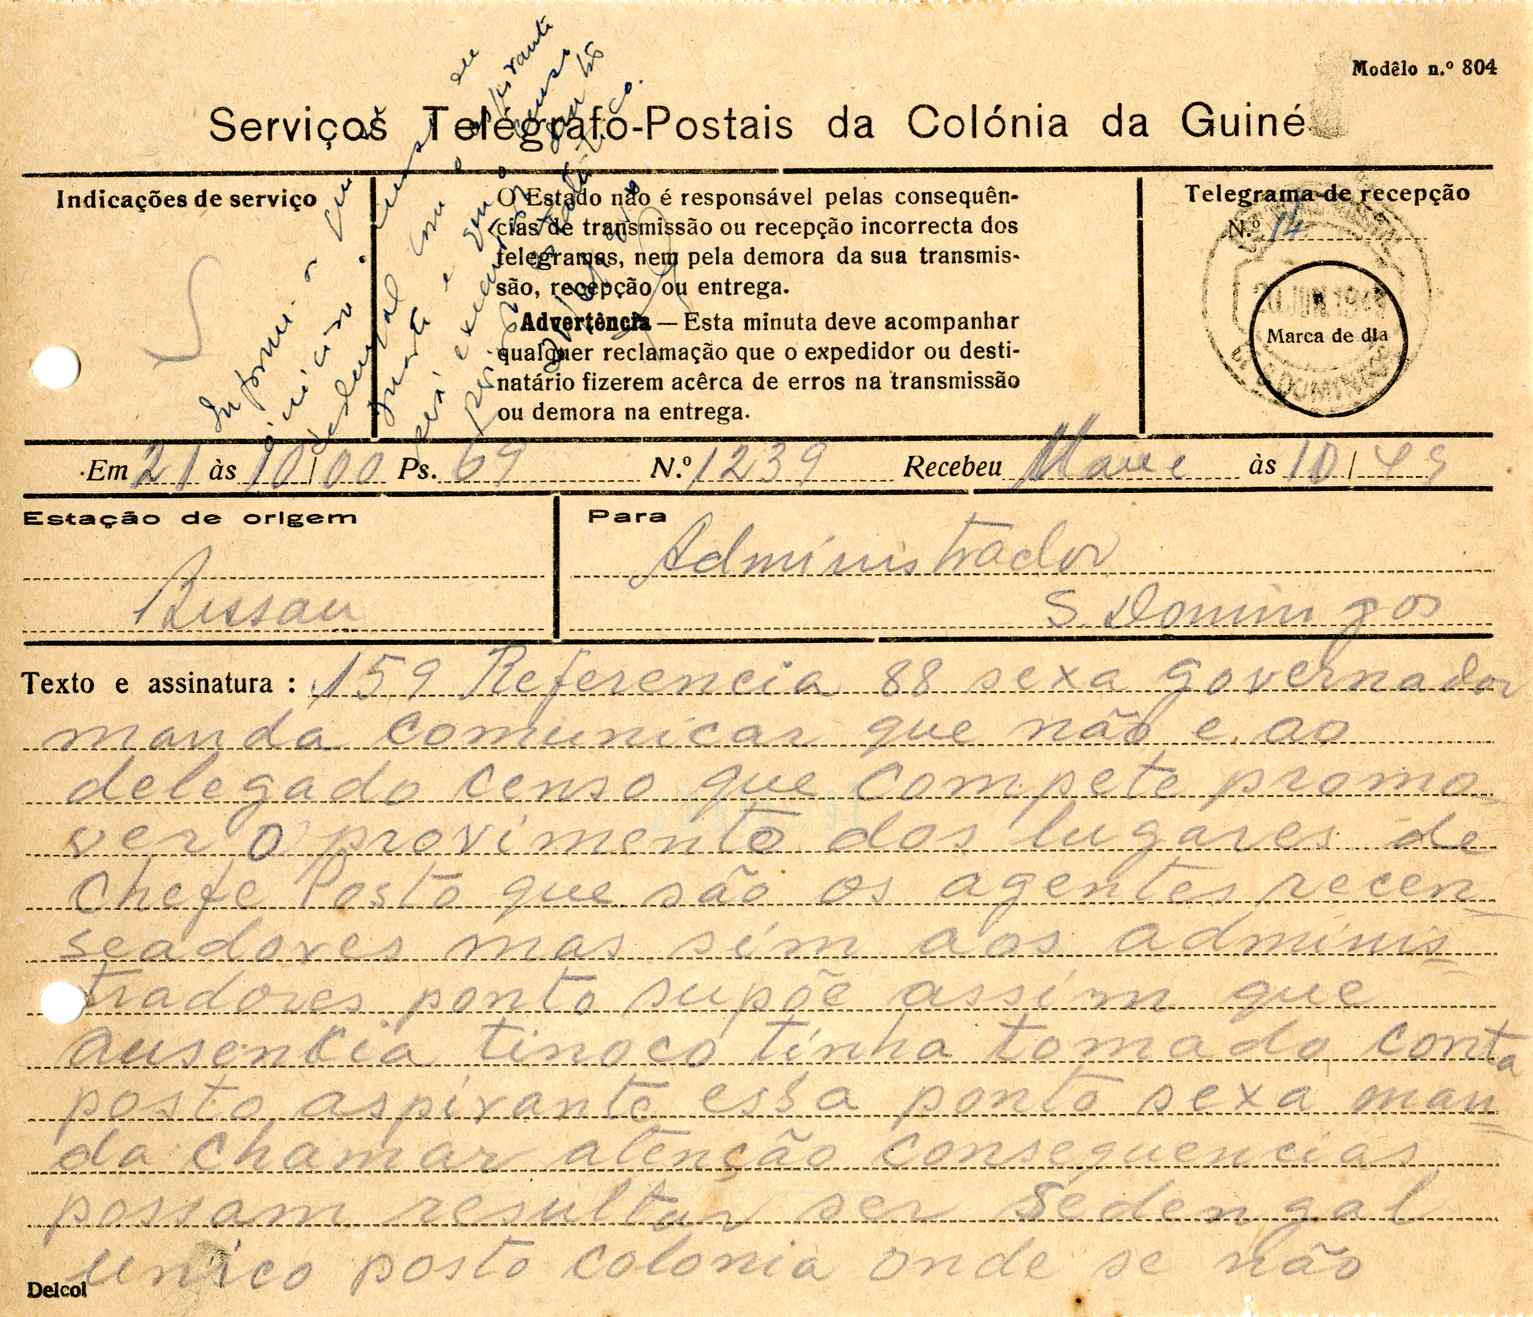 Modêlo n.º 804
Serviços Telégrafo-Postais da Colónia da Guiné
Indicações de serviço
O Estado não é responsável pelas consequên-
cias de transmissão ou recepção incorrecta dos
telegramas, nem pela demora da sua transmis-
são, recepção ou entrega.
Advertência — Esta minuta deve acompanhar
qualquer reclamação que o expedidor ou desti-
natário fizerem acêrca de erros na transmissão
ou demora na entrega.
Telegrama de recepção
N.º 14
Marca de dia
S. DOMINGOS
Em 21 às 10/00 Ps. 69 N.º 1239 Recebeu às 10/45
Estação de origem
Bissau
Para
Administrador
S. Domingos
Texto e assinatura : 159 Referencia 88 sexa governador
manda comunicar que não e ao
delegado censo que compete promo-
ver o provimento dos lugares de
Chefe Posto que são os agentes recen-
seadores mas sim aos adminis-
tradores ponto supõe assim que
ausencia tinoco tinha tomado conta
posto aspirante essa ponto sexa man-
da chamar atenção consequencias
possam resultar ser Sedengal
unico posto colonia onde se não
Delcol